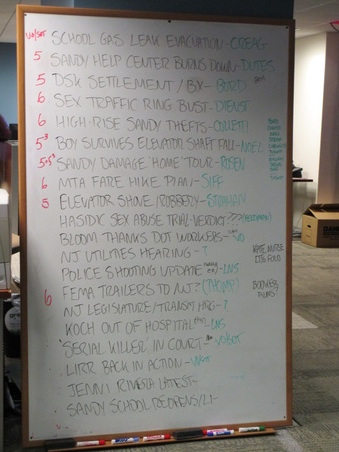 VO/SOT SCHOOL GAS LEAK EVACUATION-
5 SANDY HELP CENTER BURNS DOWN-DUTES
5 DSK SETTLEMENT/BX-BURD
6 SEX TRAFFIC RING BUST-DIENST
6 HIGH-RISE SANDY THEFTS-
5 BOY SURVIVES ELEVATOR SHAFT FALL-NOEL
5 SANDY DAMAGE HOME TOUR-ROSEN
6 MTA FARE HIKE PLAN-SIFF
5 ELEVATOR SHOVE ROBBERY-
HASIDIC SEX ABUSE TRIAL-VERDICT???
BLOOM THANKS DOT WORKERS-VO
NJ UTILITIES HEARING-?
POLICE SHOOTING UPDATE-LNS
6 FEMA TRAILERS TO NJ?
NJ LEGISLATURE/TRANSIT HRG-?
KOCH OUT OF HOSPITAL-LNS
'SERIAL KILLER' IN COURT-VO/SOT
LIRR BACK IN ACTION-
JENNI RIVERA LATEST-
SANDY SCHOOL REOPENS/LI-